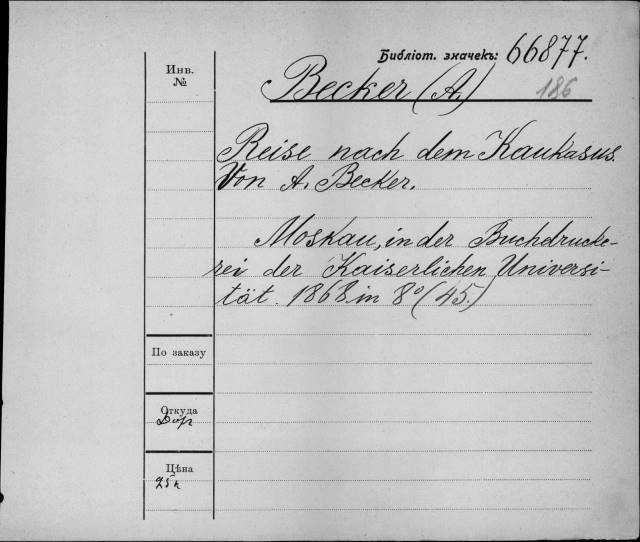 Библіот. значекъ: 66877.
Инв.
№
Becker (A.)
186
Reise nach dem Kaukasus.
Von A. Becker.
Moskau, in der Buchdrucke-
rei der Kaiserlichen Universi-
tät. 1868. in 8º (45.)
По заказу
Откуда
Дор
Цѣна
25к